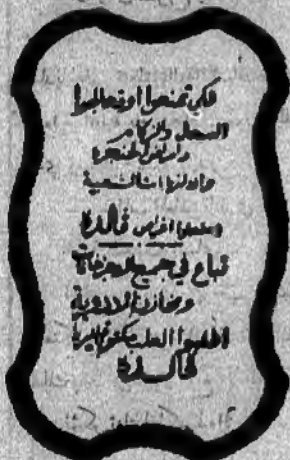 لكي تمنعوا او تعالجوا
السعال والزكام
وامراض الحنجرة
والنزلات الشعبية
استعملوا اقراص فالدا
تباع في جميع الاجزخانات
ومخازن الادوية
اطلبوا العلب مكتوب عليها
فالدا